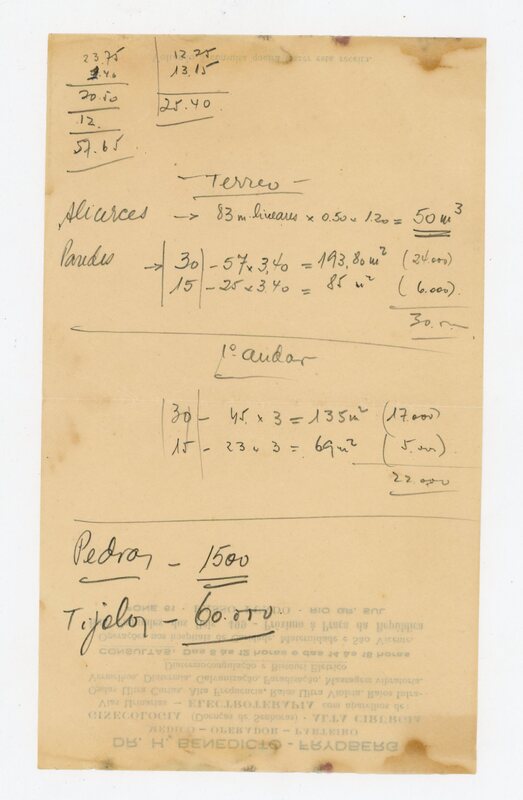 23.75
1.40
20.50
12.
57.65
12.25
13.15
25.40
Terreo
Alicerces → 83 m. lineares × 0.50 × 1.20 = 50 m³
Paredes → 30 - 57 × 3,40 = 193,80 m² (24.000)
15 - 25 × 3.40 = 85 m² (6.000)
30.000
1º andar
30 - 45 × 3 = 135 m² (17.000)
15 - 23 × 3 = 69 m² (5.000)
22.000
Pedras - 1500
Tijolos - 60.000
FONE 61 - PASSO FUNDO - RIO GR. SUL
499 - Proximo á Praça da Republica
Operações nos hospitais de Caridade, Maternidade e São Vicente.
CONSULTAS. Das 8 ás 12 horas e das 14 ás 18 horas
Diatermocoagulação e Bisturi Eletrico
Vermelhos, Diatermia, Galvanização, Faradização, Massagem vibratoria,
Ondas Ultra Curtas, Alta Frequencia, Raios Ultra Violeta, Raios Infra-
Vias Urinarias — ELECTROTERAPIA com aparelhos de:
GINECOLOGIA (Doenças de Senhoras) - ALTA CIRURGIA
MEDICO — OPERADOR — PARTEIRO
DR. H. BENEDICTO - FRYDBERG